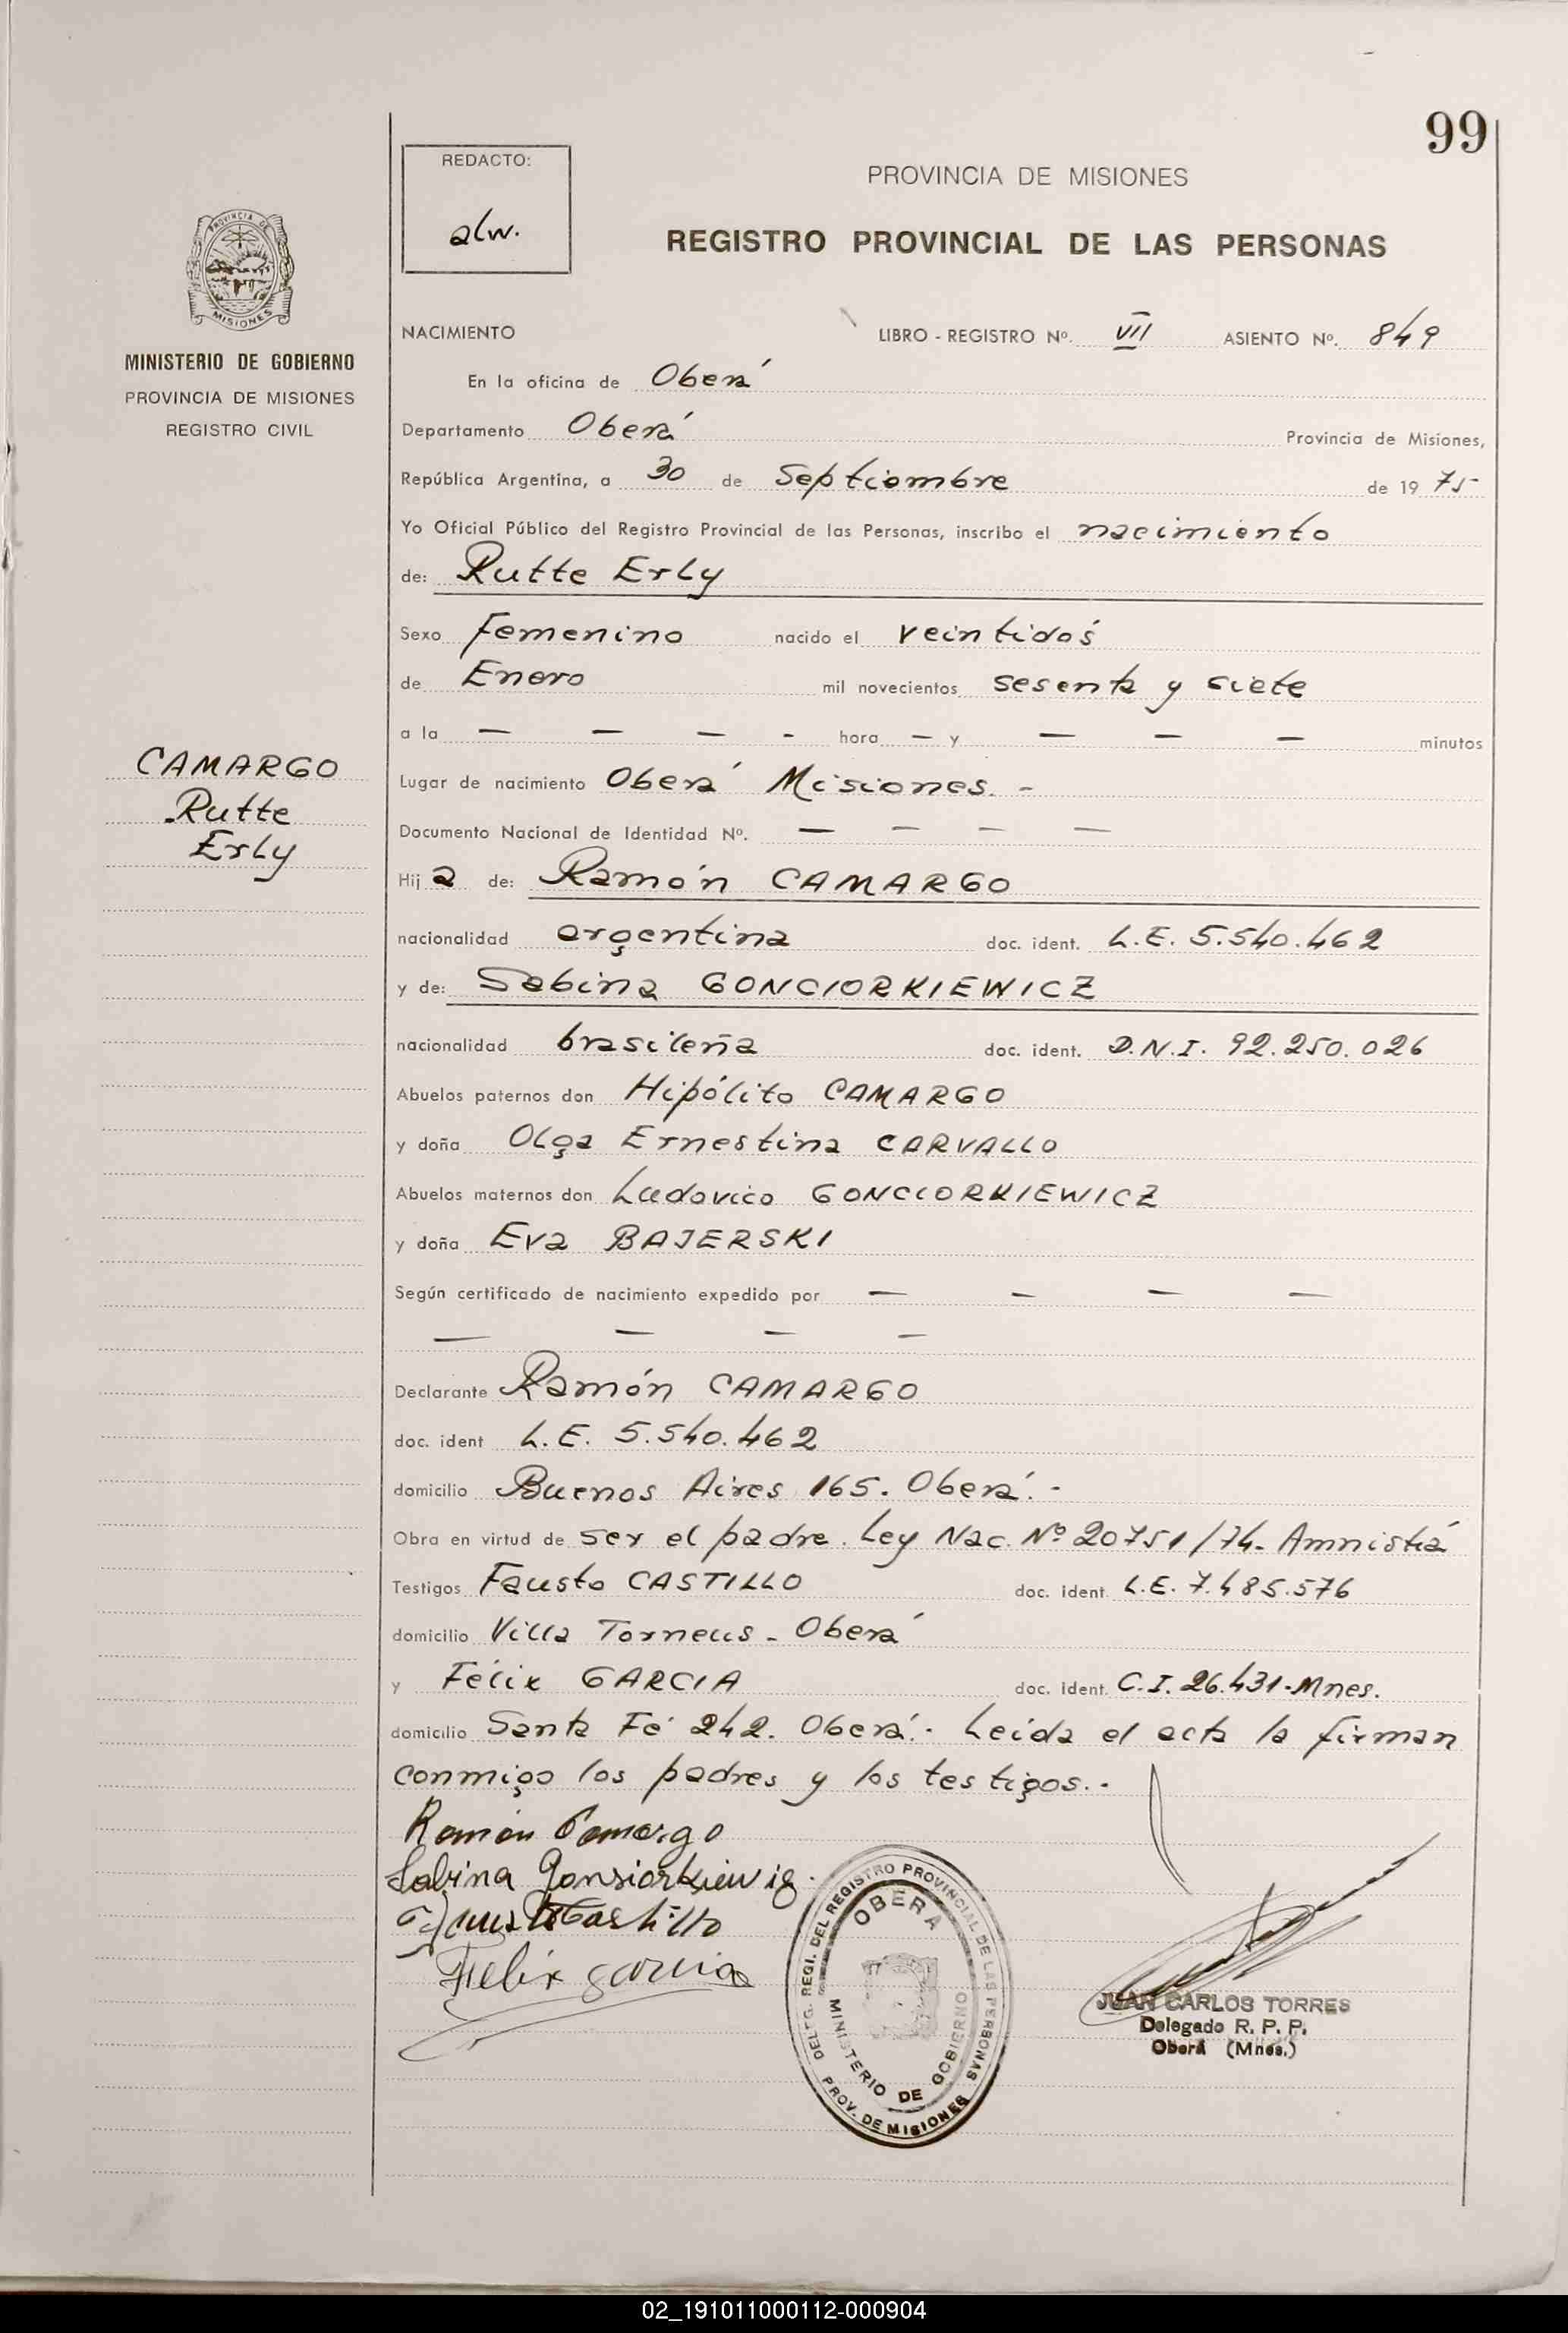 99
REDACTO:
alw.
PROVINCIA DE MISIONES
REGISTRO PROVINCIAL DE LAS PERSONAS
PROVINCIA DE
MISIONES
MINISTERIO DE GOBIERNO
PROVINCIA DE MISIONES
REGISTRO CIVIL
NACIMIENTO LIBRO - REGISTRO Nº. VII ASIENTO Nº. 849
En la oficina de Oberá
Departamento Oberá Provincia de Misiones,
República Argentina, a 30 de Septiembre de 19 75
Yo Oficial Público del Registro Provincial de las Personas, inscribo el nacimiento
de: Rutte Erly
Sexo femenino nacido el veintidós
de Enero mil novecientos sesenta y siete
a la — — — - hora — y — — — minutos
CAMARGO
Rutte
Erly
Lugar de nacimiento Oberá Misiones. -
Documento Nacional de Identidad Nº. — — — —
Hija de: Ramón CAMARGO
nacionalidad argentina doc. ident. L.E. 5.540.462
y de: Sabina GONCIORKIEWICZ
nacionalidad brasileña doc. ident. D.N.I. 92.250.026
Abuelos paternos don Hipólito CAMARGO
y doña Olga Ernestina CARVALLO
Abuelos maternos don Ludovico GONCIORKIEWICZ
y doña Eva BAJERSKI
Según certificado de nacimiento expedido por — — — —
— — — —
Declarante Ramón CAMARGO
doc. ident L.E. 5.540.462
domicilio Buenos Aires 165. Oberá. -
Obra en virtud de ser el padre. Ley Nac. Nº 20751/74- Amnistía
Testigos Fausto CASTILLO doc. ident. L.E. 7.485.576
domicilio Villa Torneus - Oberá
y Félix GARCIA doc. ident. C.I. 26.431-Mnes.
domicilio Santa Fé 242. Oberá.- Leída el acta la firman
conmigo los padres y los testigos.-
Ramón Camargo
Sabina Gonsiorkiewig
Castillo
Felix garcia
DELEG. REGI. DEL REGISTRO PROVINCIAL DE LAS PERSONAS
OBERA
MINISTERIO DE GOBIERNO
PROV. DE MISIONES
JUAN CARLOS TORRES
Delegado R. P. P.
Oberá (Mnes.)
02_191011000112-000904